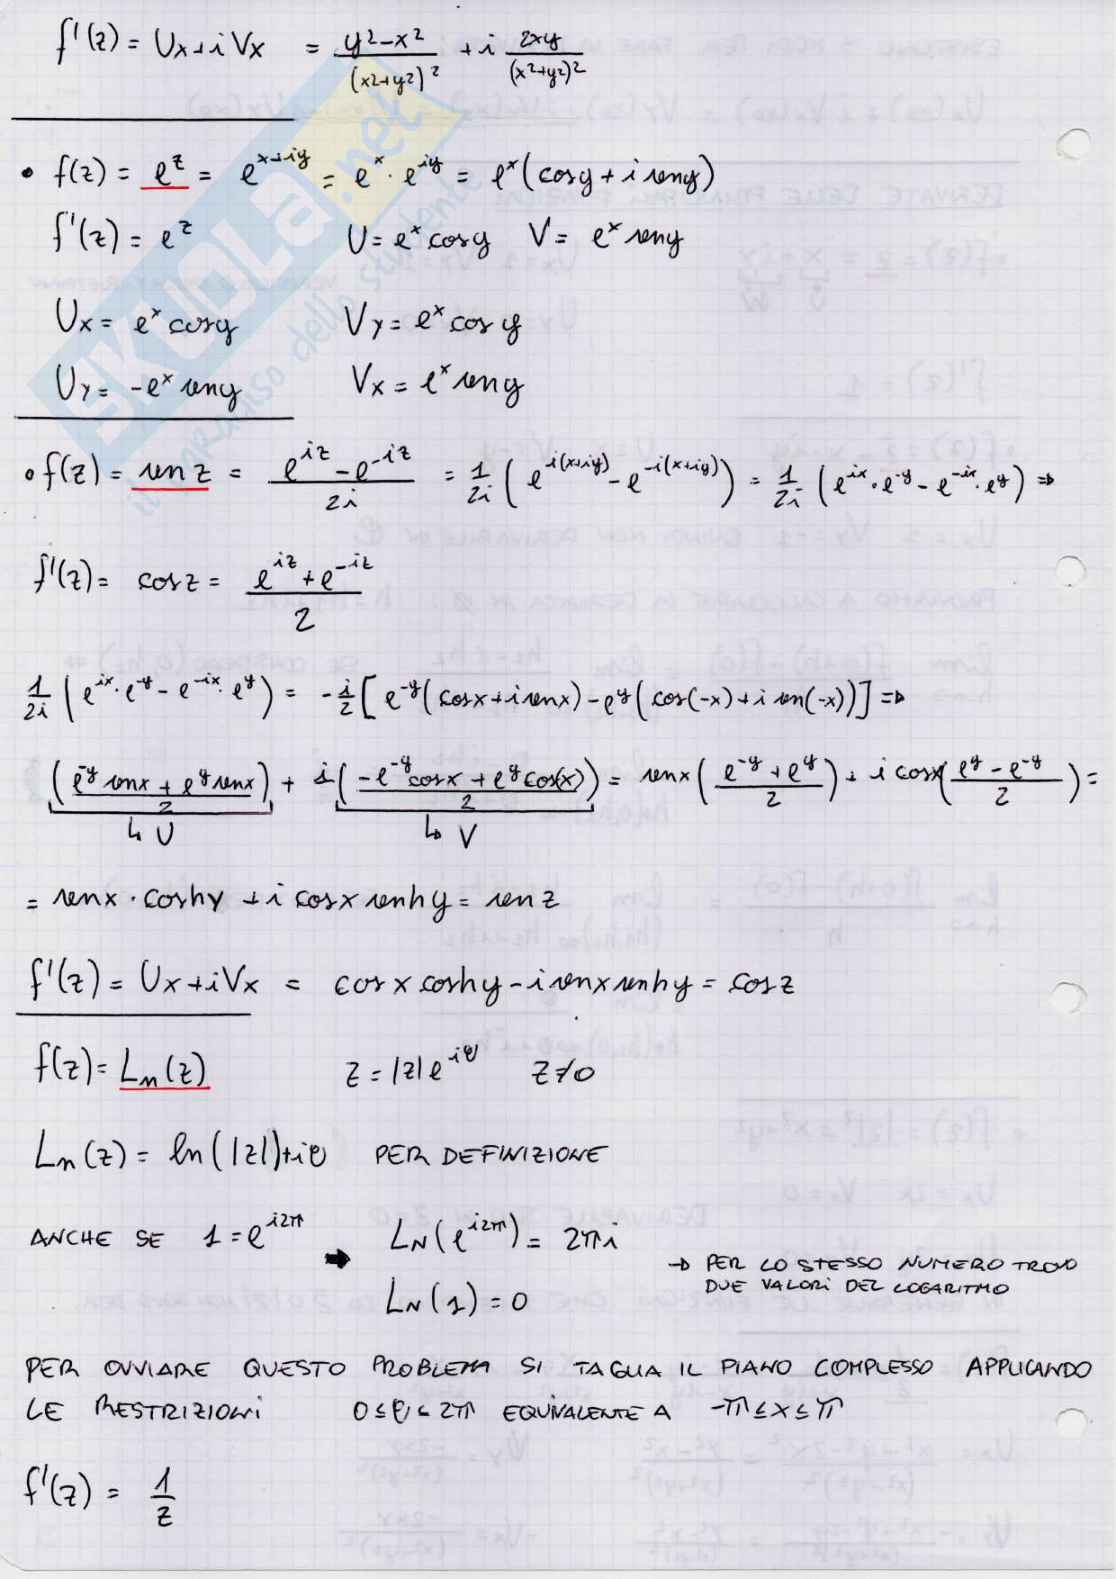 f'(z) = Ux + i Vx = (y² - x²)/(x²+y²)² + i 2xy/(x²+y²)²
• f(z) = e^z = e^(x+iy) = e^x · e^(iy) = e^x (cosy + i seny)
f'(z) = e^z U = e^x cosy V = e^x seny
Ux = e^x cosy Vy = e^x cosy
Uy = -e^x seny Vx = e^x seny
• f(z) = sen z = (e^(iz) - e^(-iz))/2i = 1/2i (e^(i(x+iy)) - e^(-i(x+iy))) = 1/2i (e^(ix) · e^(-y) - e^(-ix) · e^y) ⇒
f'(z) = cos z = (e^(iz) + e^(-iz))/2
1/2i (e^(ix) · e^(-y) - e^(-ix) · e^y) = -i/2 [e^(-y) (cosx + i senx) - e^y (cos(-x) + i sen(-x))] ⇒
((e^(-y) senx + e^y senx)/2) + i ((-e^(-y) cosx + e^y cos(x))/2) = senx ((e^(-y) + e^y)/2) + i cosx ((e^y - e^(-y))/2) =
↳ U ↳ V
= senx · coshy + i cosx senhy = sen z
f'(z) = Ux + i Vx = cosx coshy - i senx senhy = cos z
f(z) = Ln(z) z = |z| e^(iϑ) z ≠ 0
Ln(z) = ln(|z|) + iϑ PER DEFINIZIONE
ANCHE SE 1 = e^(i2π) ➡ LN(e^(i2π)) = 2πi
LN(1) = 0
→ PER LO STESSO NUMERO TROVO
DUE VALORI DEL LOGARITMO
PER OVVIARE QUESTO PROBLEMA SI TAGLIA IL PIANO COMPLESSO APPLICANDO
LE RESTRIZIONI 0 ≤ ϑ < 2π EQUIVALENTE A -π ≤ x ≤ π
f'(z) = 1/z
SKUOLA.net
il paradiso dello studente